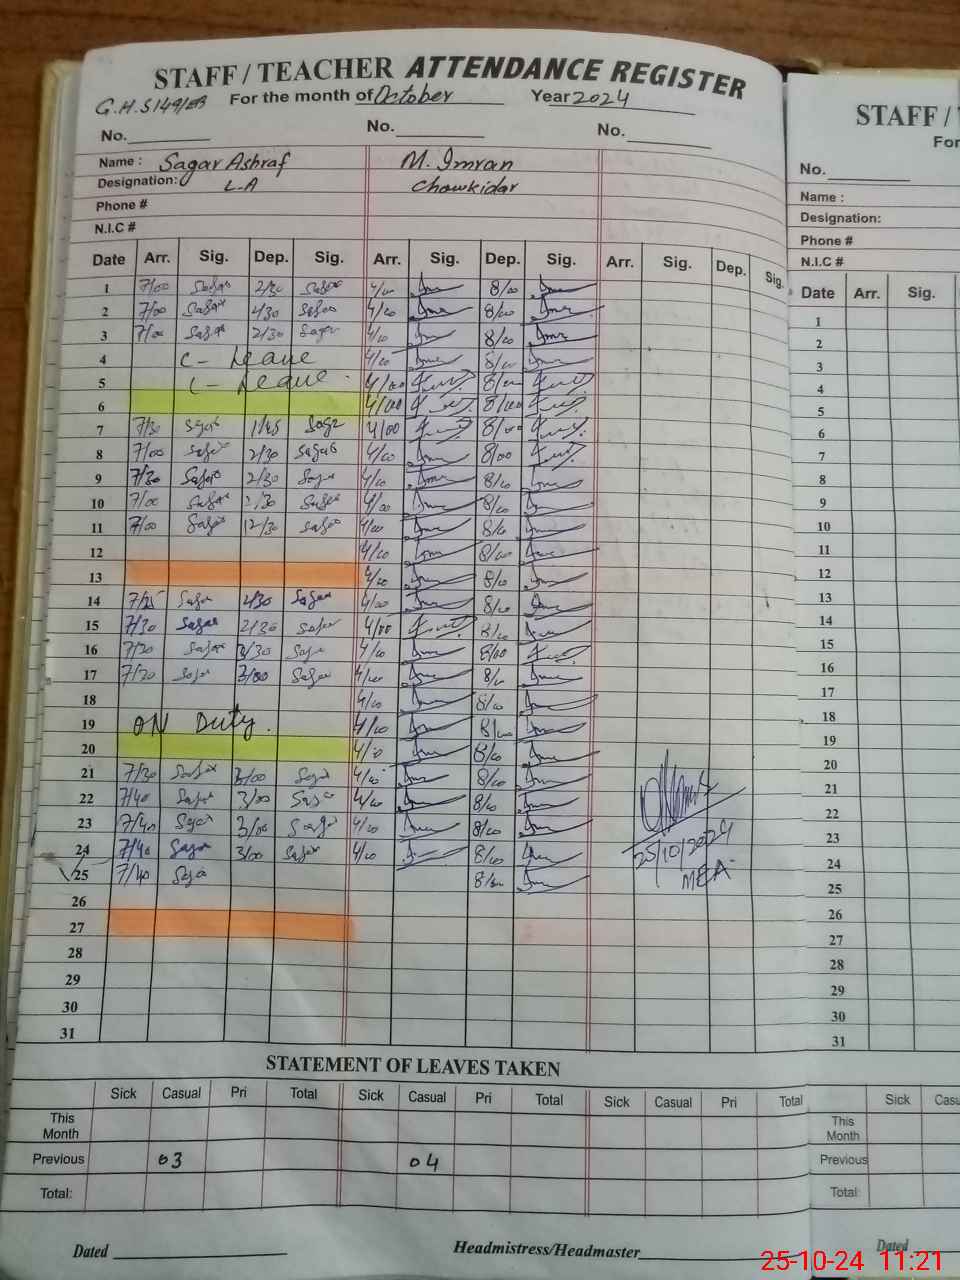 STAFF / TEACHER ATTENDANCE REGISTER
G.H.S 149/EB For the month of October Year 2024
No. No. No.
Name : Sagar Ashraf M. Imran
Designation: L-A Chowkidar
Phone #
N.I.C #
Date Arr. Sig. Dep. Sig. Arr. Sig. Dep. Sig. Arr. Sig. Dep. Sig.
1 7/00 Sagar 2/30 Sagar 4/00 8/00
2 7/00 Sagar 4/30 Sagar 4/00 8/00
3 7/00 Sagar 2/30 Sagar 4/00 8/00
4 C- Leave 4/00 8/00
5 C- Leave 4/00 8/00
6 4/00 8/00
7 7/30 Sagar 1/45 Sagar 4/00 8/00
8 7/00 Sagar 2/30 Sagar 4/00 8/00
9 7/30 Sagar 2/30 Sagar 4/00 8/00
10 7/00 Sagar 2/30 Sagar 4/00 8/00
11 7/00 Sagar 12/30 Sagar 4/00 8/00
12 4/00 8/00
13 4/00 8/00
14 7/25 Sagar 2/30 Sagar 4/00 8/00
15 7/30 Sagar 2/30 Sagar 4/00 8/00
16 7/20 Sagar 2/30 Sagar 4/00 8/00
17 7/20 Sagar 3/00 Sagar 4/00 8/00
18 4/00 8/00
19 ON Duty. 4/00 8/00
20 4/00 8/00
21 7/30 Sagar 3/00 Sagar 4/00 8/00
22 7/40 Sagar 3/00 Sagar 4/00 8/00
23 7/40 Sagar 3/00 Sagar 4/00 8/00
24 7/40 Sagar 3/00 Sagar 4/00 8/00 25/10/2024
25 7/40 Sagar 8/00 MEA
26
27
28
29
30
31
STATEMENT OF LEAVES TAKEN
Sick Casual Pri Total Sick Casual Pri Total Sick Casual Pri Total
This Month
Previous 03 04
Total:
Dated Headmistress/Headmaster
STAFF /
For
No.
Name :
Designation:
Phone #
N.I.C #
Date Arr. Sig.
1
2
3
4
5
6
7
8
9
10
11
12
13
14
15
16
17
18
19
20
21
22
23
24
25
26
27
28
29
30
31
Sick
This Month
Previous
Total:
Dated
25-10-24 11:21